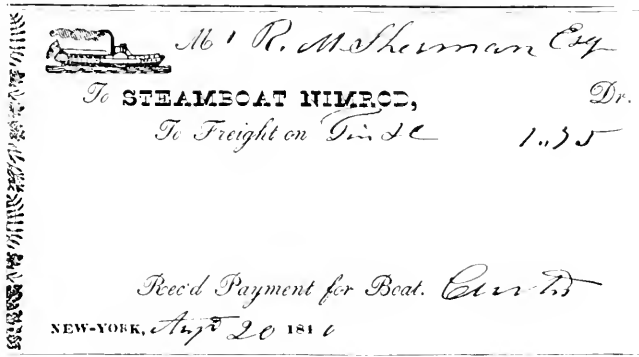 Mr R. M Sherman Esq
To STEAMBOAT NIMROD, Dr.
To Freight on Tin &c 1.75
Rec'd Payment for Boat.
NEW-YORK, Augt 20 184